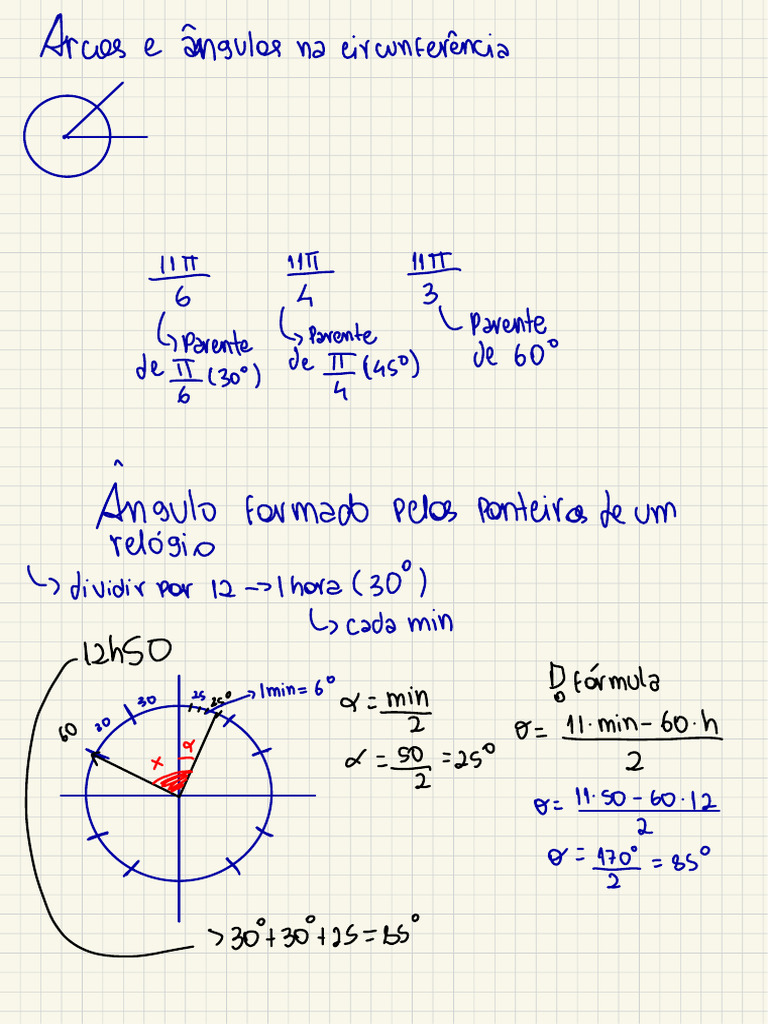 Arcos e ângulos na circunferência
11π/6 11π/4 11π/3
↳ Parente de π/6 (30°)
↳ Parente de π/4 (45°)
↳ Parente de 60°
Ângulo formado pelos ponteiros de um
relógio
↳ dividir por 12 → 1 hora (30°)
↳ cada min
12h50
60 30 30 25 25° → 1min = 6°
x α
α = min/2
α = 50/2 = 25°
fórmula
σ = 11·min - 60·h/2
σ = 11·50 - 60·12/2
σ = 170°/2 = 85°
> 30° + 30° + 25 = 85°